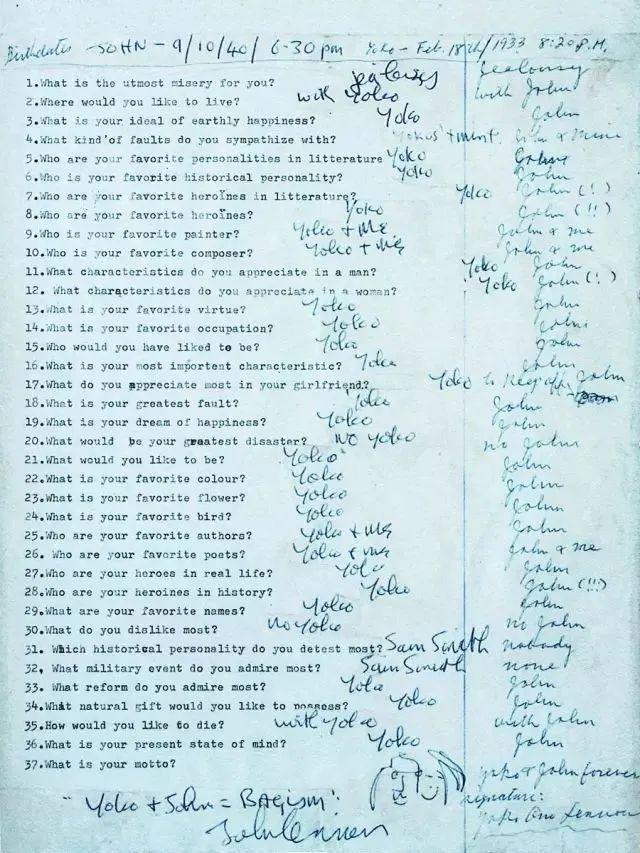 Birthdates - JOHN - 9/10/40/ 6-30pm Yoko - Feb. 18th/1933 8:20P.M.
1.What is the utmost misery for you? jealousy Jealousy
2.Where would you like to live? with Yoko with John
3.What is your ideal of earthly happiness? Yoko John
4.What kind of faults do you sympathize with? Yokos' + mine. John + Mine
5.Who are your favorite personalities in litterature Yoko John
6.Who is your favorite historical personality? Yoko John
7.Who are your favorite heroines in litterature? Yoko John (!)
8.Who are your favorite heroines? Yoko John (!!)
9.Who is your favorite painter? Yoko + Me John + me
10.Who is your favorite composer? Yoko + Me John + me
11.What characteristics do you appreciate in a man? Yoko John
12. What characteristics do you appreciate in a woman? Yoko John (!)
13.What is your favorite virtue? Yoko John
14.What is your favorite occupation? Yoko John
15.Who would you have liked to be? Yoko John
16.What is your most importent characteristic? Yoko John
17.What do you appreciate most in your girlfriend? Yoko John
18.What is your greatest fault? Yoko John
19.What is your dream of happiness? Yoko John
20.What would be your greatest disaster? NO Yoko no John
21.What would you like to be? Yoko John
22.What is your favorite colour? Yoko John
23.What is your favorite flower? Yoko John
24.What is your favorite bird? Yoko John
25.Who are your favorite authors? Yoko + Me John
26. Who are your favorite poets? Yoko + Me John + me
27.Who are your heroes in real life? Yoko John
28.Who are your heroines in history? Yoko John (!!!)
29.What are your favorite names? Yoko John
30.What do you dislike most? no Yoko no John
31. Which historical personality do you detest most? Sam Smeeth nobody
32. What military event do you admire most? Sam Smeeth none
33. What reform do you admire most? Yoko John
34.What natural gift would you like to possess? Yoko John
35.How would you like to die? with Yoko with John
36.What is your present state of mind? Yoko John
37.What is your motto? Yoko & John forever
"Yoko + John = BAGISM". signature:
John Lennon Yoko Ono Lennon